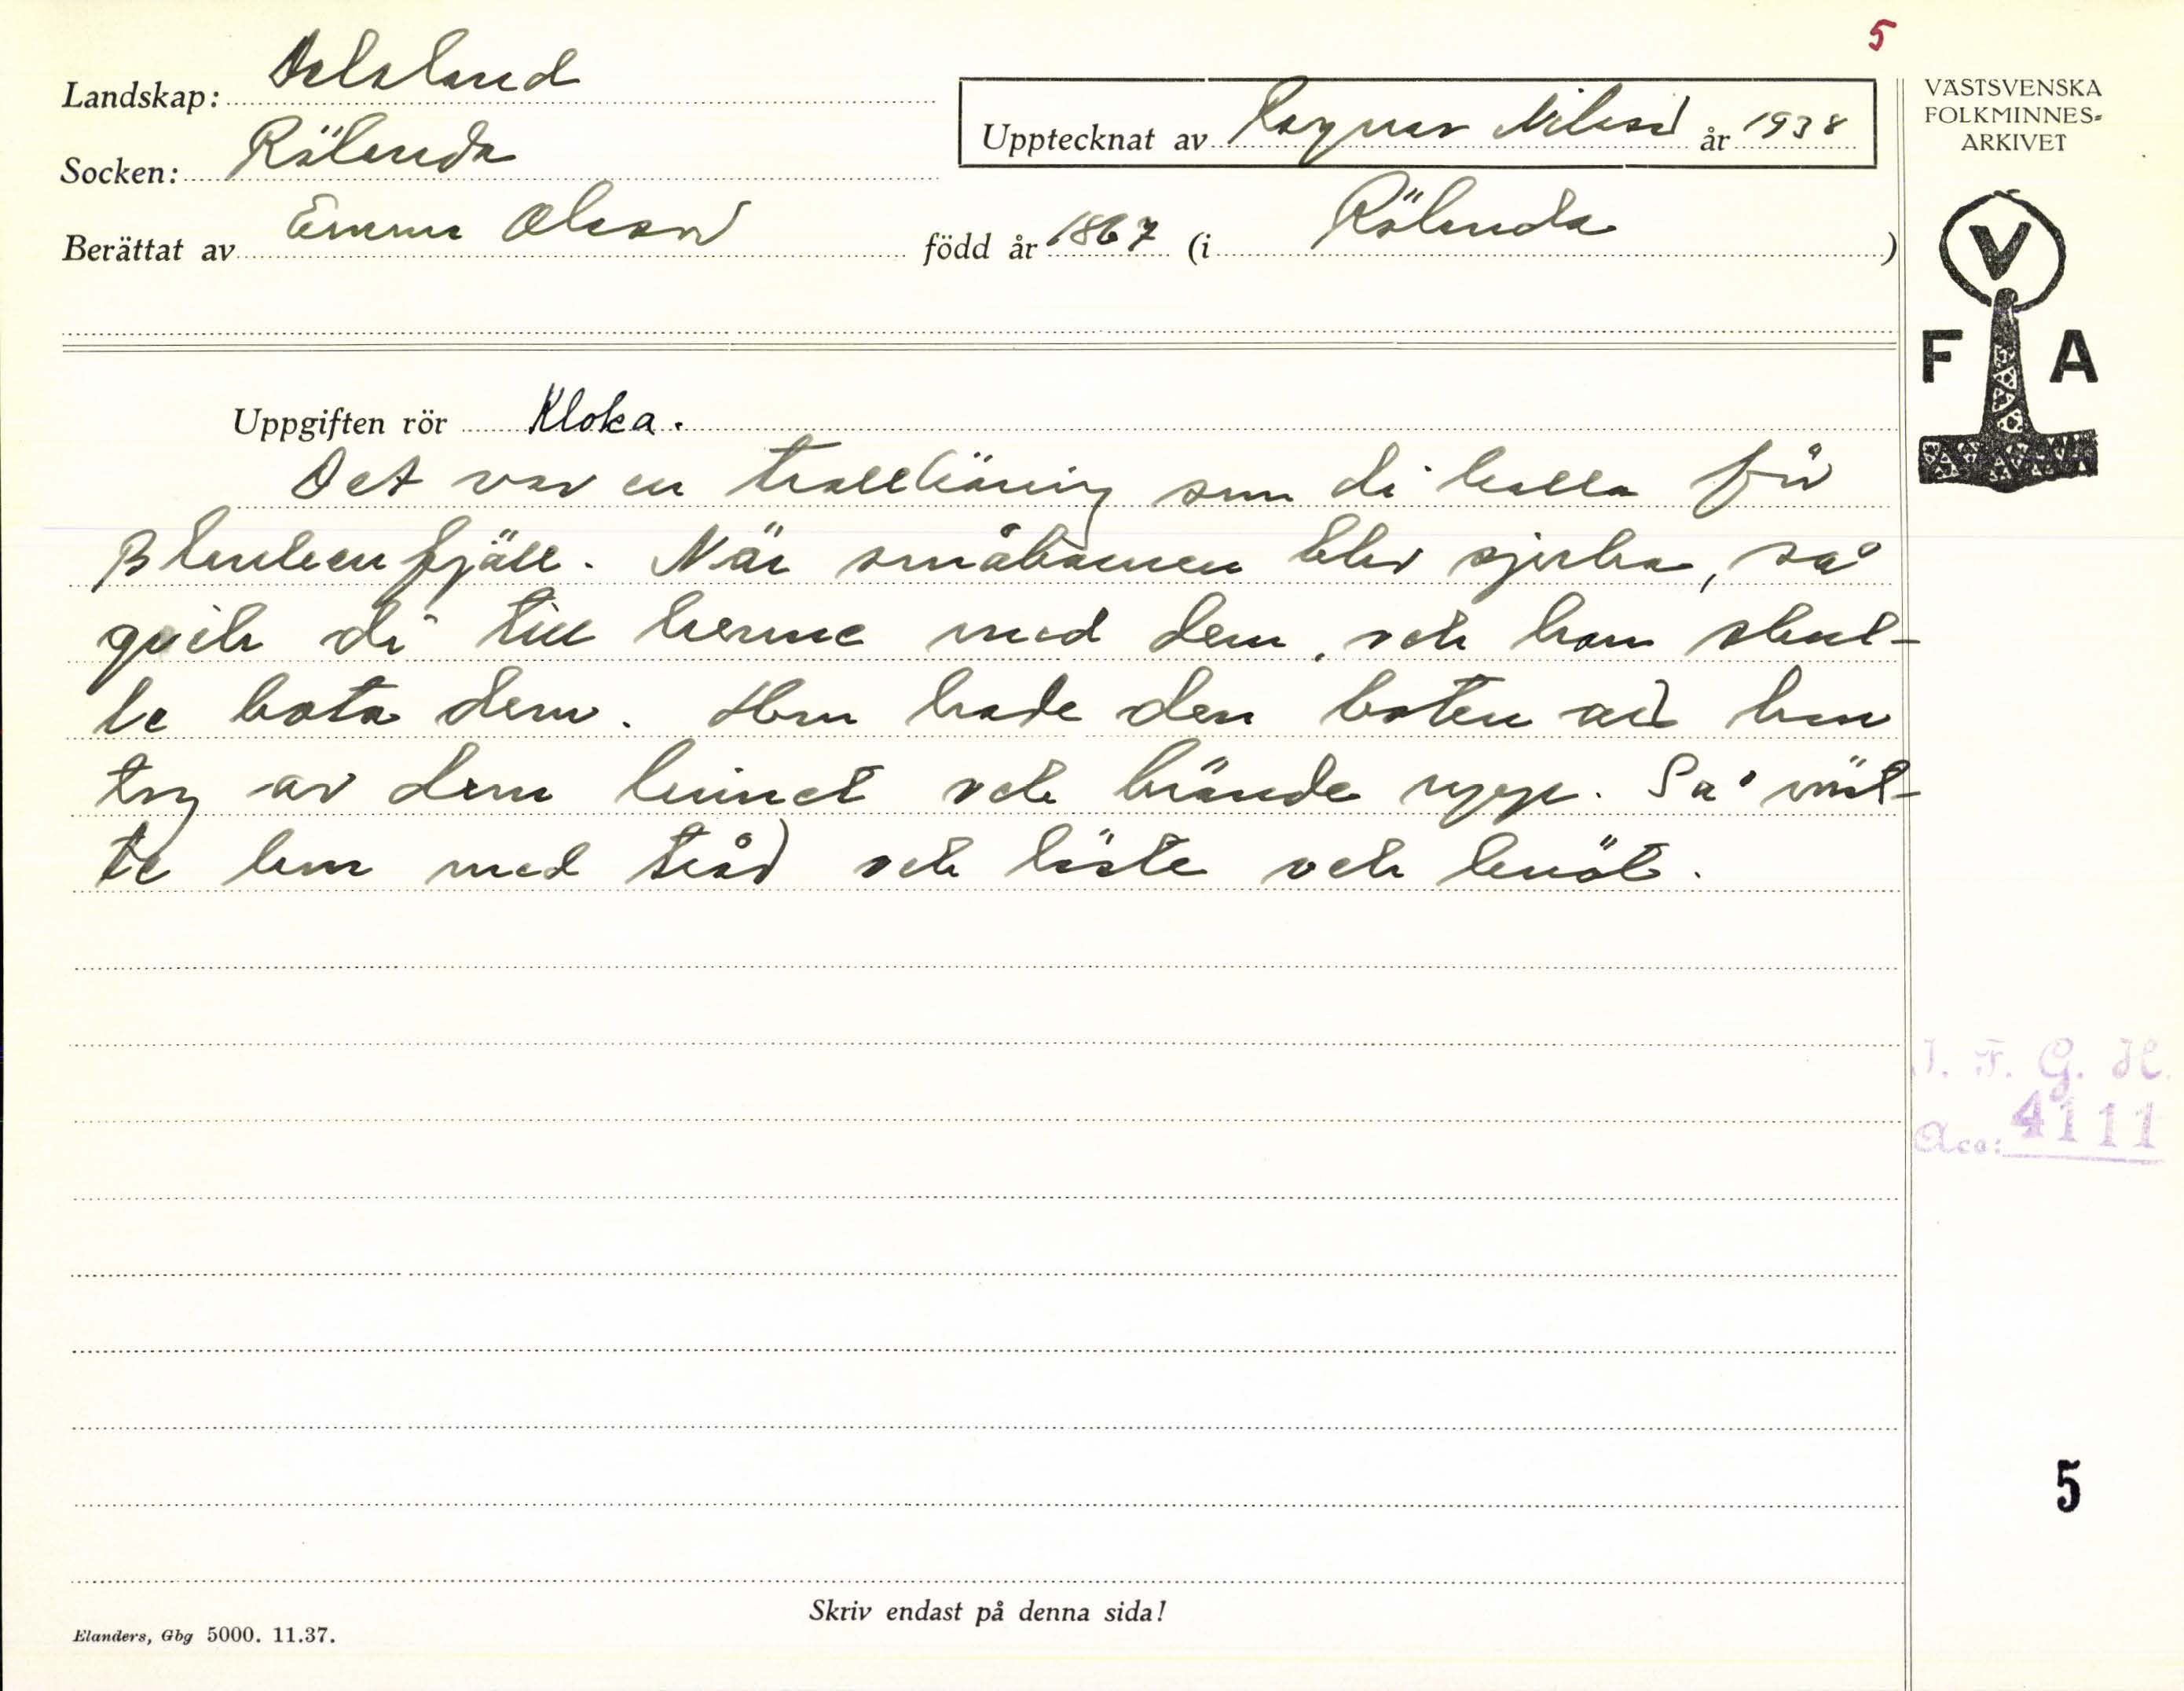 5
Landskap: Dalsland
Socken: Rölanda
Upptecknat av Ragnar Nilsson år 1938
Berättat av Emma Olsson född år 1867 (i Rölanda)
VÄSTSVENSKA
FOLKMINNES-
ARKIVET
V
F A
Uppgiften rör Kloka.
Det var en trollkäring som di kalla för
fjäll. När småbarnen blev sjuka, så
gick di till henne med dem, och hon skul-
le bota dem. Hon hade den boten att hon
tog av dem linnet och brände upp. Så mät-
te hon med tråd och läste och knöt.
I. F. G. H.
Acc: 4111
5
Skriv endast på denna sida!
Elanders, Gbg 5000. 11.37.